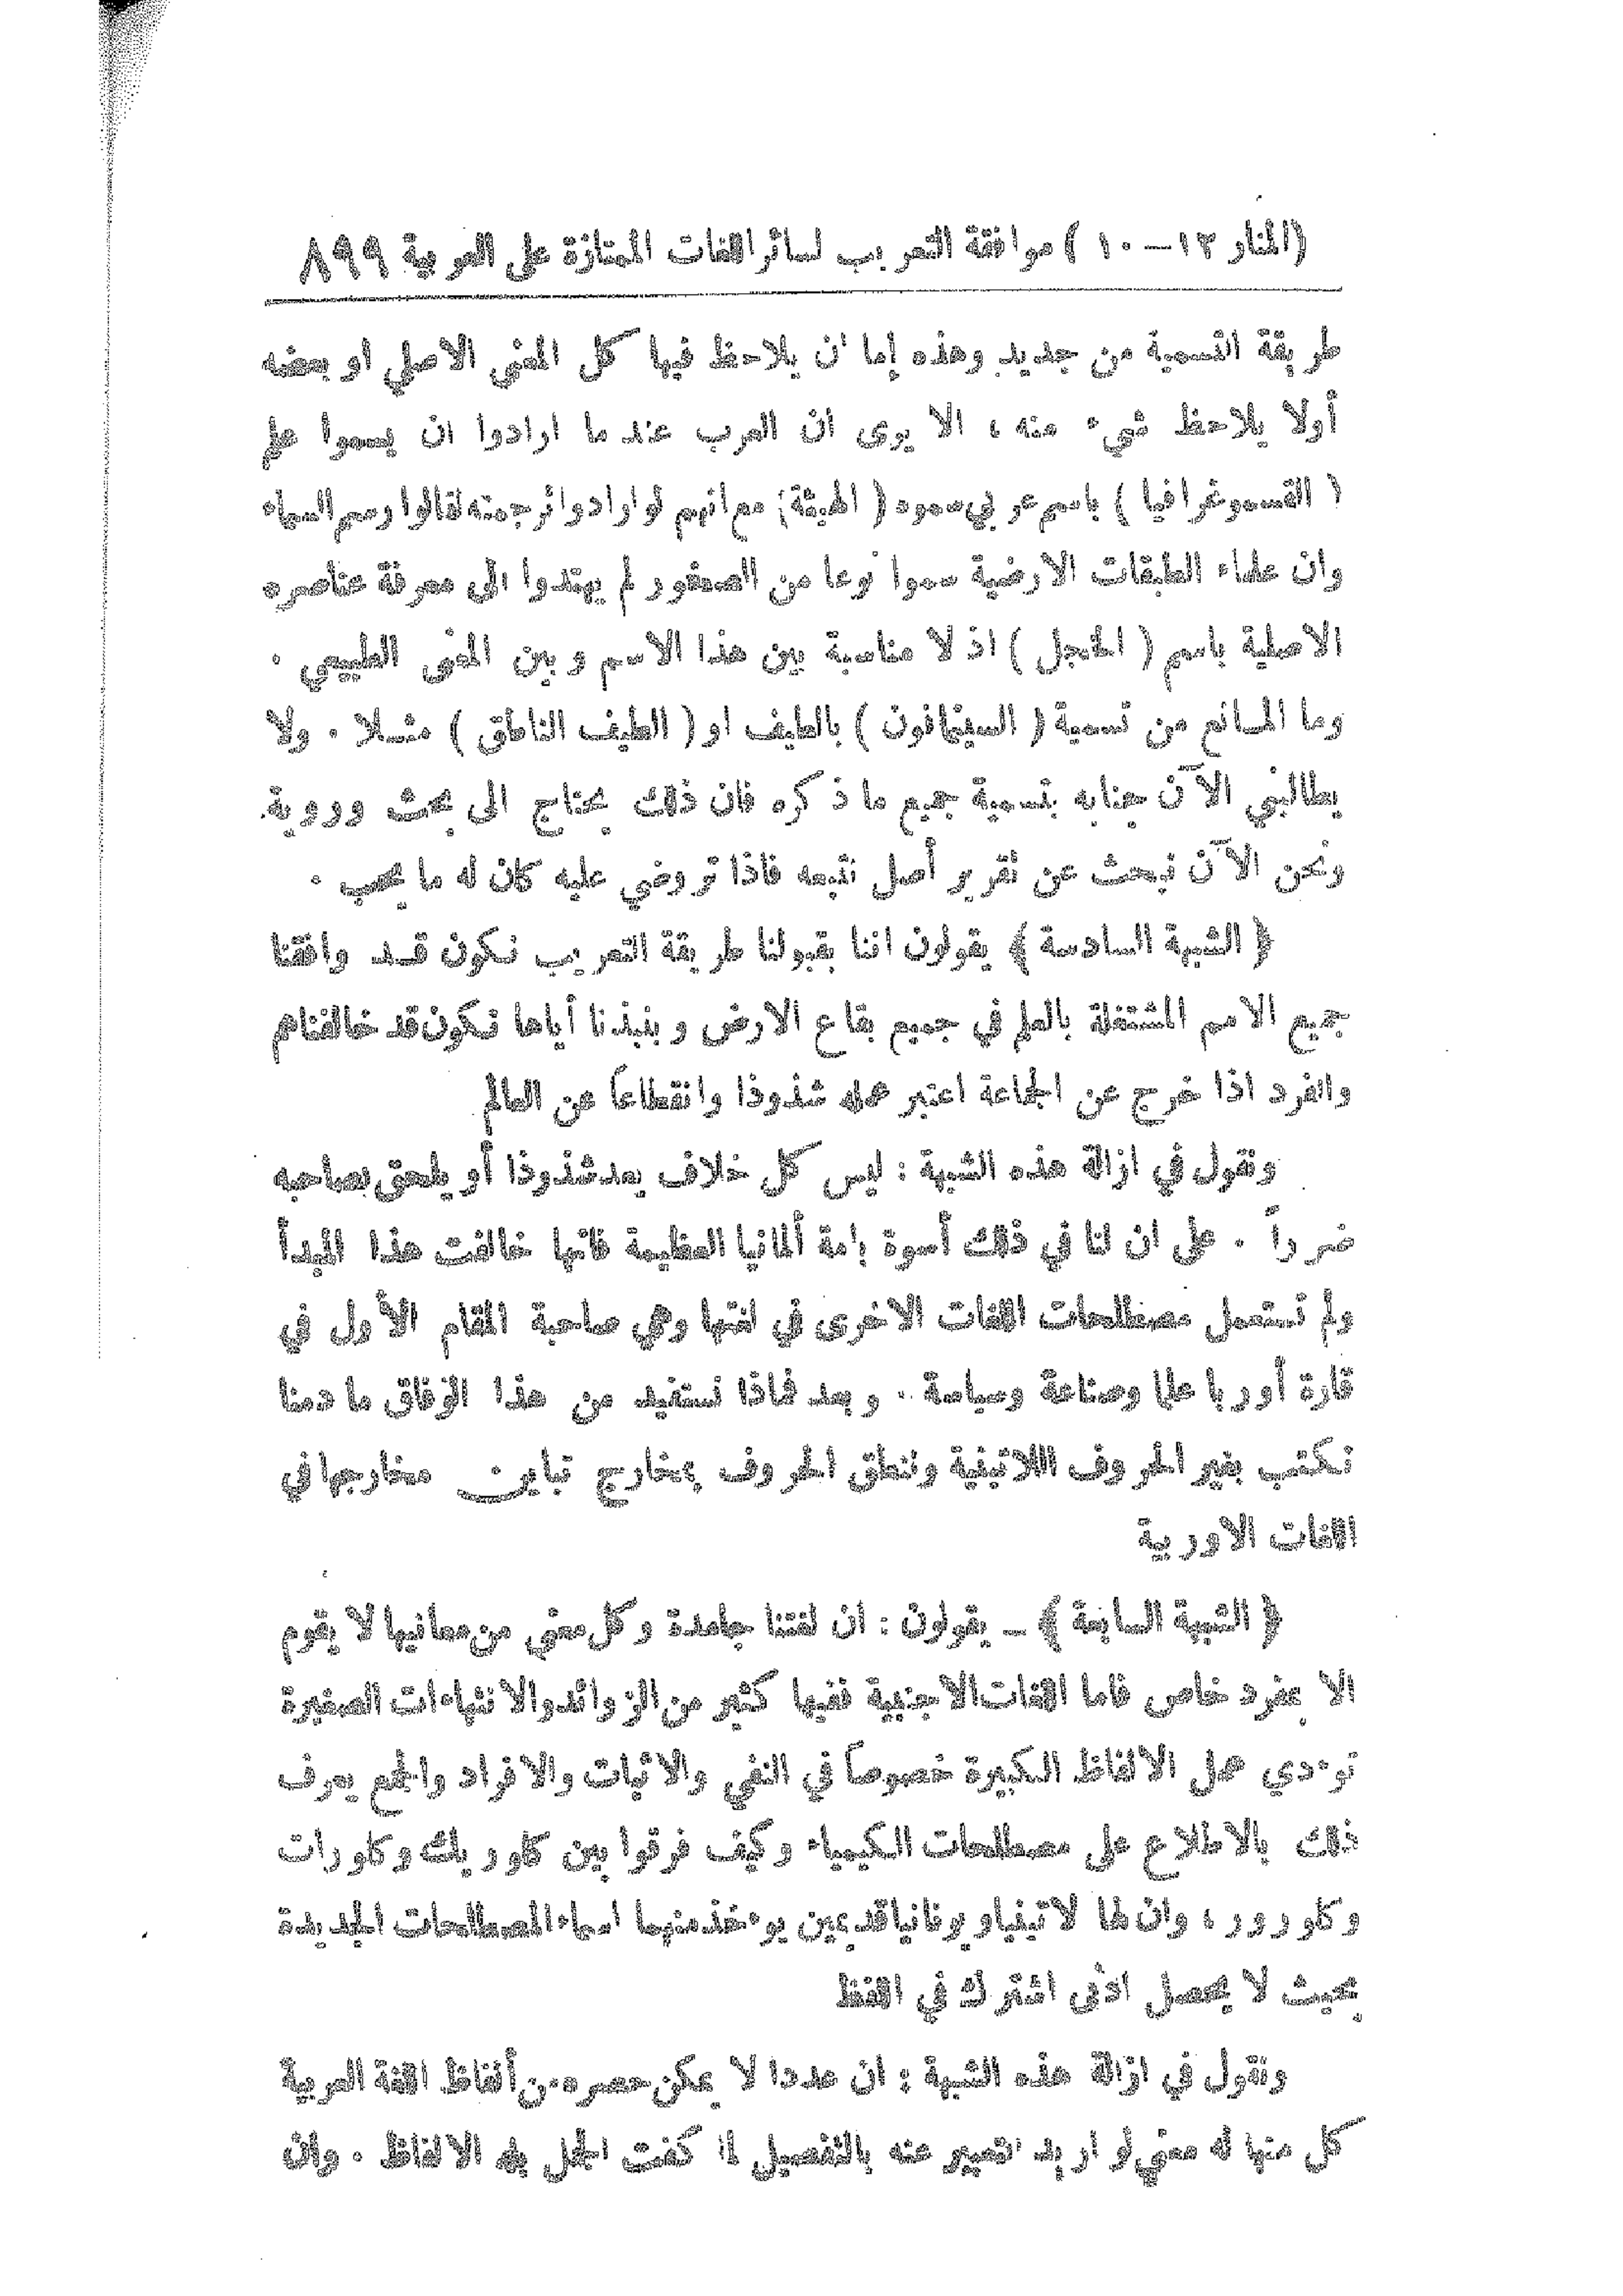 (المنار ١٢–١٠) موافقة التعريب لسائر اللغات الممتازة على العربية ٨٩٩
طريقة التسمية من جديد وهذه إما ان يلاحظ فيها كل المعنى الاصلي او بعضه
أولا يلاحظ شيء منه ، الا يرى ان العرب عند ما ارادوا ان يسموا علم
( القسموغرافيا ) باسم عربي سموه ( الهيئة) مع انهم لو ارادوا ترجمته لقالوا رسم السماء
وان علماء الطبقات الارضية سموا نوعا من الصخور لم يهتدوا الى معرفة عناصره
الاصلية باسم ( الخجل ) اذ لا مناسبة بين هذا الاسم وبين المعنى الطبيعي .
وما المانع من تسمية ( السينمافون ) بالطيف او ( الطيف الناطق ) مثلا . ولا
يطالبني الآن جنابه بتسمية جميع ما ذكره فان ذلك يحتاج الى بحث وروية.
ونحن الآن نبحث عن تقرير أصل نتبعه فاذا تروضي عليه كان له ما يحب .
﴿ الشبهة السادسة ﴾ يقولون اننا بقبولنا طريقة التعريب نكون قد وافقنا
جميع الامم المشتغلة بالعلم في جميع بقاع الارض وبنبذنا أياها نكون قد خالفناهم
والفرد اذا خرج عن الجماعة اعتبر عمله شذوذا وانقطاعاً عن العالم
ونقول في ازالة هذه الشبهة : ليس كل خلاف يعد شذوذا أو يلحق بصاحبه
ضرراً . على ان لنا في ذلك أسوة بامة ألمانيا العظيمة فانها خالفت هذا المبدأ
ولم تستعمل مصطلحات اللغات الاخرى في لغتها وهي صاحبة المقام الأول في
قارة أوربا علما وصناعة وسياسة .. وبعد فماذا نستفيد من هذا الوفاق ما دمنا
نكتب بغير الحروف اللاتينية وننطق الحروف بمخارج تباين مخارجها في
اللغات الاوربية
﴿ الشبهة السابعة ﴾ – يقولون : ان لغتنا جامدة وكل معنى من معانيها لا يقوم
الا بمفرد خاص فاما اللغات الاجنبية ففيها كثير من الزوائد والانتهاءات الصغيرة
توءدي عمل الالفاظ الكبيرة خصوصاً في النفي والاثبات والافراد والجمع يعرف
ذلك بالاطلاع على مصطلحات الكيمياء وكيف فرقوا بين كلوريك وكلورات
وكلورور ، وان لها لاتينيا ويونانيا قديمين يوءخذ منهما اسماء المصطلحات الجديدة
بحيث لا يحصل ادنى اشترك في اللفظ
ونقول في ازالة هذه الشبهة : ان عددا لا يمكن حصره من ألفاظ اللغة العربية
كل منها له معنى لو اريد التعبير عنه بالتفصيل لما كفت الجمل بله الالفاظ . وان